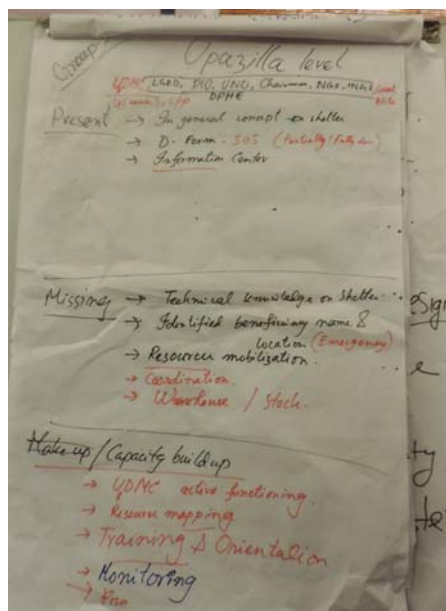 Group
Upazilla level
UDMC LGED, PIO, UNO, Chairman, NGO, Local
DPHE
Present → In general concept on shelter
→ D-Form. SOS (Partially/Fully dm)
→ Information Center
Missing → Technical knowledge on Shelter
→ Identified beneficiary name &
location (Emergency)
→ Resources mobilization.
→ Coordination.
→ Warehouse / Stock.
Make up/Capacity build up
→ UDMC active functioning.
→ Resource mapping
→ Training & Orientation
→ Monitoring